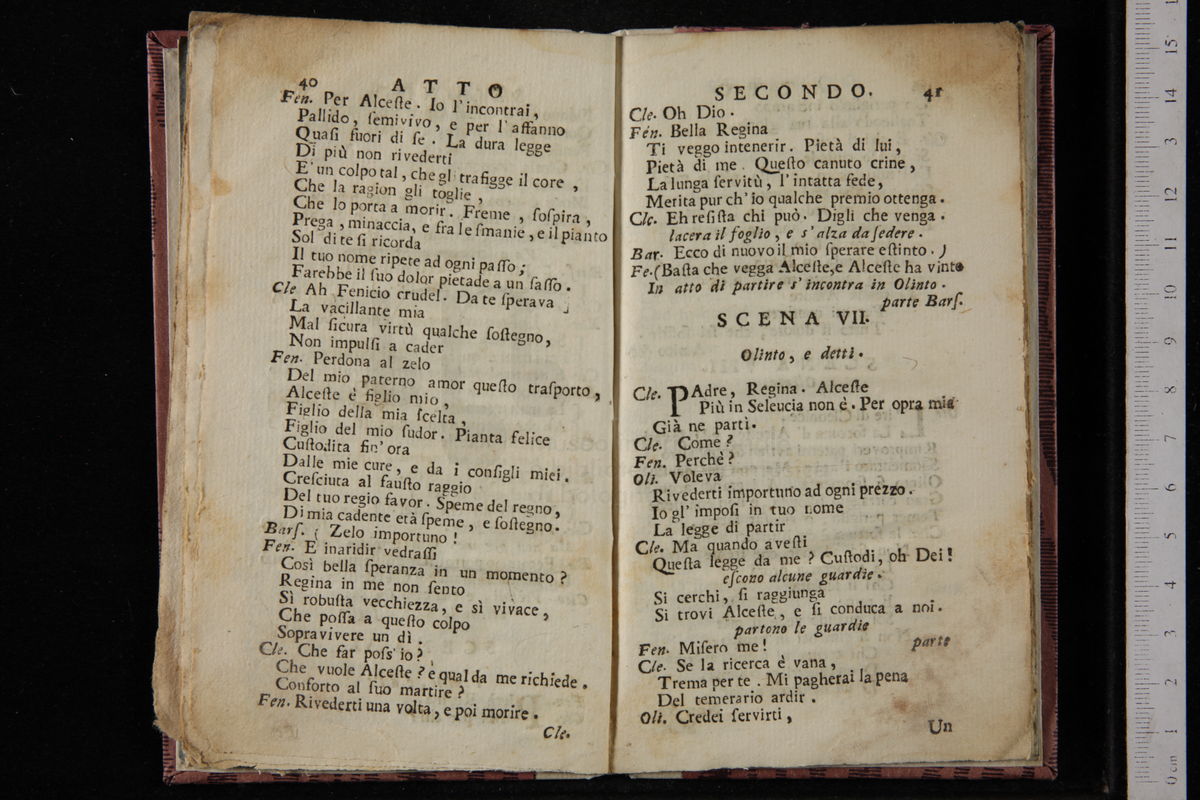 40 ATTO
Fen. Per Alceſte. Io l'incontrai,
Pallido, ſemivivo, e per l'affanno
Quaſi fuori di ſe. La dura legge
Di più non rivederti
E' un colpo tal, che gl' trafigge il core,
Che la ragion gli toglie,
Che lo porta a morir. Freme, ſoſpira,
Prega, minaccia, e fra le ſmanie, e il pianto
Sol di te ſi ricorda
Il tuo nome ripete ad ogni paſſo;
Farebbe il ſuo dolor pietade a un ſaſſo.
Cle Ah Fenicio crudel. Da te ſperava
La vacillante mia
Mal ſicura virtù qualche ſoſtegno,
Non impulſi a cader
Fen. Perdona al zelo
Del mio paterno amor queſto traſporto,
Alceſte è figlio mio,
Figlio della mia ſcelta,
Figlio del mio ſudor. Pianta felice
Cuſtodita fin' ora
Dalle mie cure, e da i conſigli miei.
Creſciuta al fauſto raggio
Del tuo regio favor. Speme del regno,
Di mia cadente età ſpeme, e ſoſtegno.
Barſ. ( Zelo importuno!
Fen. E inaridir vedraſſi
Così bella ſperanza in un momento?
Regina in me non ſento
Sì robuſta vecchiezza, e sì vivace,
Che poſſa a queſto colpo
Sopravivere un dì.
Cle. Che far poſs' io?
Che vuole Alceſte? e qual da me richiede.
Conforto al ſuo martire?
Fen. Rivederti una volta, e poi morire.
Cle.
SECONDO. 41
Cle. Oh Dio.
Fen. Bella Regina
Ti veggo intenerir. Pietà di lui,
Pietà di me. Queſto canuto crine,
La lunga ſervitù, l'intatta fede,
Merita pur ch'io qualche premio ottenga.
Cle. Eh reſiſta chi può. Digli che venga.
lacera il foglio, e s'alza da ſedere.
Bar. Ecco di nuovo il mio ſperare eſtinto.)
Fe. (Baſta che vegga Alceſte, e Alceſte ha vinto
In atto di partire s'incontra in Olinto.
parte Barſ.
SCENA VII.
Olinto, e detti.
Cle. PAdre, Regina. Alceſte
Più in Seleucia non è. Per opra mia
Già ne partì.
Cle. Come?
Fen. Perchè?
Oli. Voleva
Rivederti importuno ad ogni prezzo.
Io gl' impoſi in tuo nome
La legge di partir
Cle. Ma quando aveſti
Queſta legge da me? Cuſtodi, oh Dei!
eſcono alcune guardie.
Si cerchi, ſi raggiunga
Si trovi Alceſte, e ſi conduca a noi.
partono le guardie
Fen. Miſero me! parte
Cle. Se la ricerca è vana,
Trema per te. Mi pagherai la pena
Del temerario ardir.
Oli. Credei ſervirti,
Un
0 cm 1 2 3 4 5 6 7 8 9 10 11 12 13 14 15